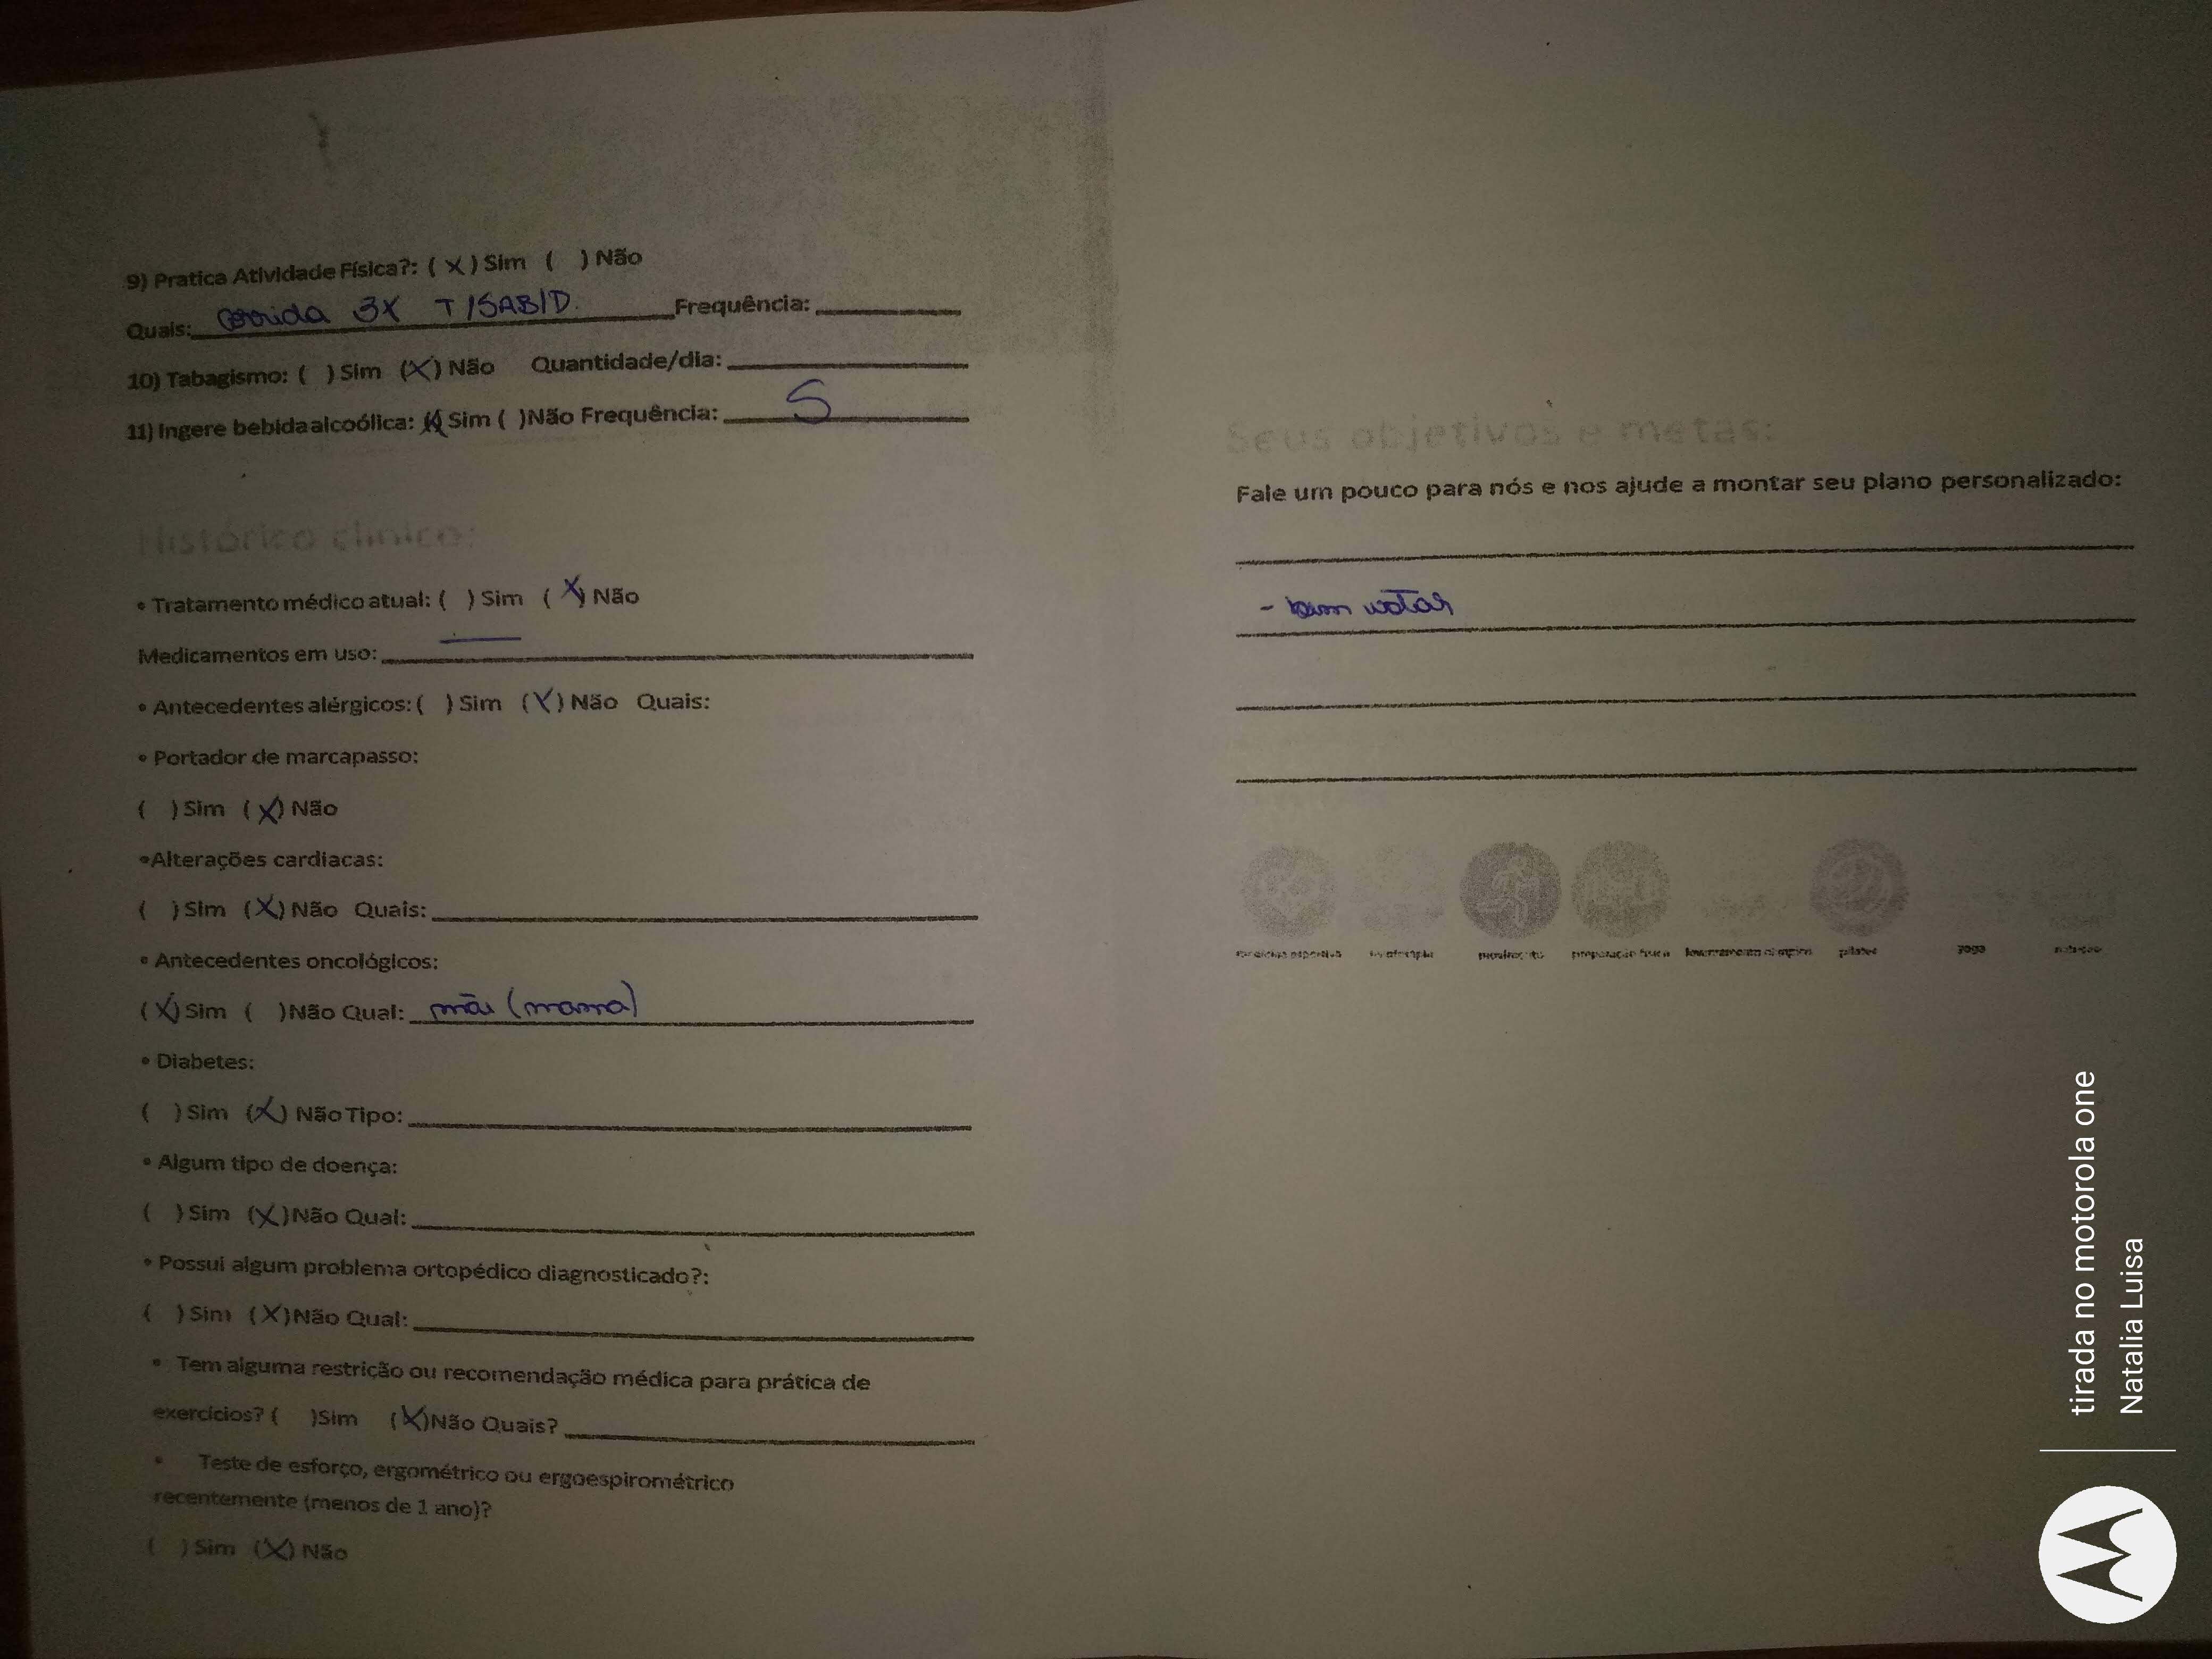 9) Pratica Atividade Física?: ( X ) Sim ( ) Não
Quais: corrida 3X T/SAB/D. Frequência:
10) Tabagismo: ( ) Sim (X) Não Quantidade/dia:
11) Ingere bebida alcoólica: (X) Sim ( )Não Frequência: S
Histórico clínico:
• Tratamento médico atual: ( ) Sim ( X) Não
Medicamentos em uso: —
• Antecedentes alérgicos: ( ) Sim (X) Não Quais:
• Portador de marcapasso:
( ) Sim (X) Não
•Alterações cardiacas:
( ) Sim (X) Não Quais:
• Antecedentes oncológicos:
(X) Sim ( )Não Qual: mãe (mama)
• Diabetes:
( ) Sim (X) Não Tipo:
• Algum tipo de doença:
( ) Sim (X)Não Qual:
• Possui algum problema ortopédico diagnosticado?:
( ) Sim (X)Não Qual:
• Tem alguma restrição ou recomendação médica para prática de
exercícios? ( )Sim (X)Não Quais?
• Teste de esforço, ergométrico ou ergoespirométrico
recentemente (menos de 1 ano)?
( ) Sim (X) Não
Seus objetivos e metas:
Fale um pouco para nós e nos ajude a montar seu plano personalizado:
- bem
medicina esportiva fisioterapia movimento preparação física levantamento olímpico pilates yoga nutrição
tirada no motorola one
Natalia Luisa